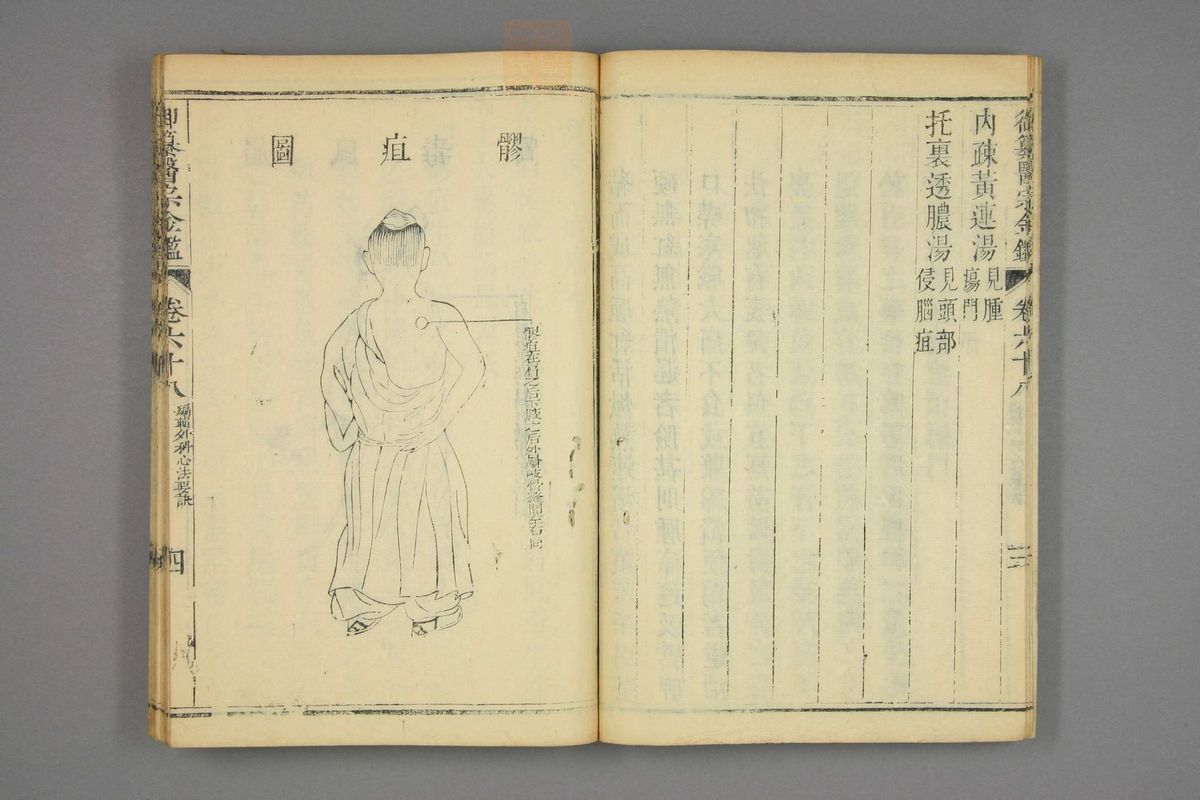 御纂醫宗金鑑 卷六十八 三
內疎黃連湯 見腫瘍門
托裏透膿湯 見頭部侵腦疽
髎疽圖
髎疽在肩之後腋之後外
御纂醫宗金鑑 卷六十八 編輯外科心法要訣 四